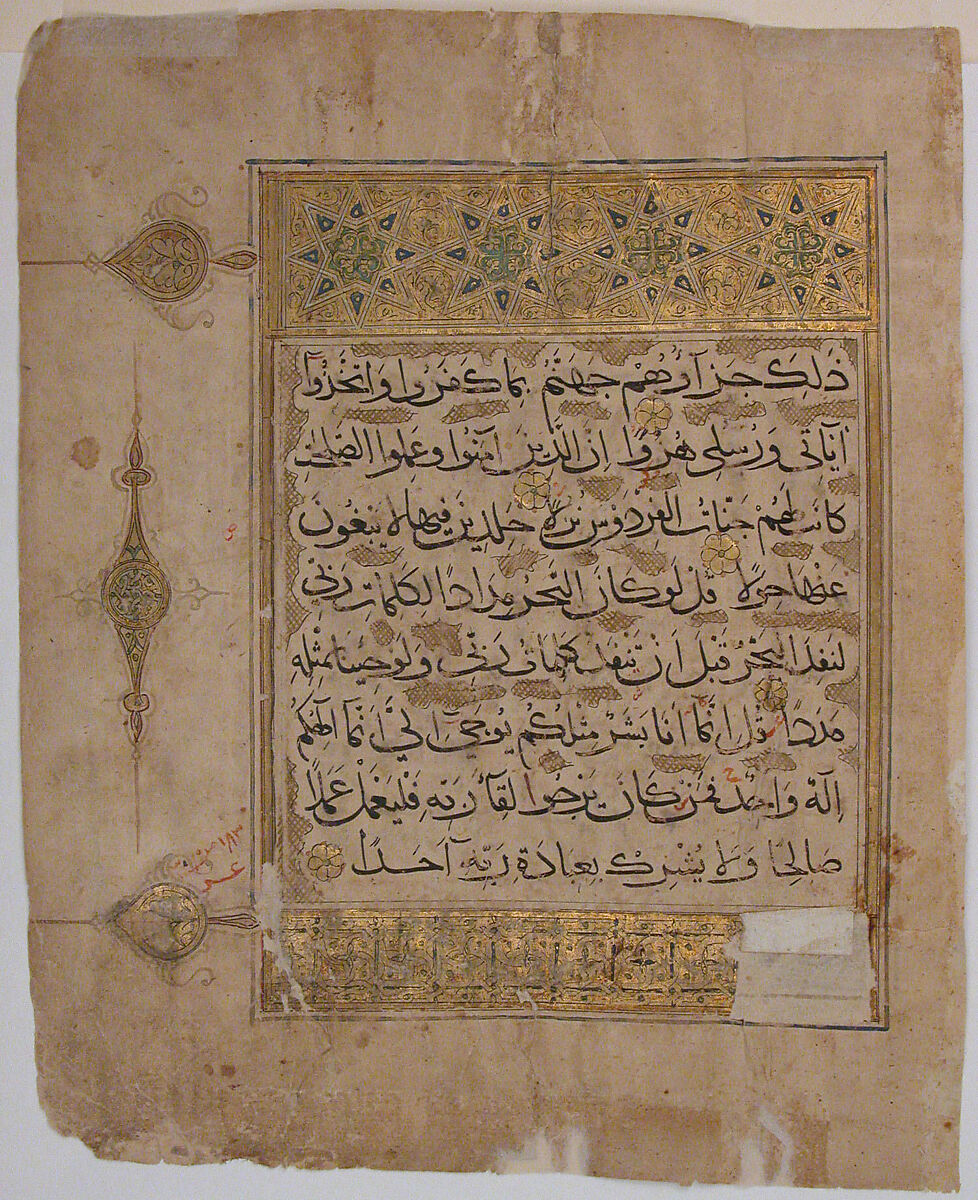 ذَلِكَ جَزَآؤُهُمْ جَهَنَّمُ بِمَا كَفَرُوا وَاتَّخَذُوٓا
آيَاتِي وَرُسُلِي هُزُوًا اِنَّ الَّذِينَ آمَنُوا وَعَمِلُوا الصَّلِحَتِ
كَانَتْ لَهُمْ جَنَّاتُ الْفِرْدَوْسِ نُزُلًا خَلِدِينَ فِيهَا لَا يَبْغُونَ
عَنْهَا حِوَلًا قُلْ لَوْ كَانَ الْبَحْرُ مِدَادًا لِكَلِمَاتِ رَبِّي
لَنَفِدَ الْبَحْرُ قَبْلَ اَنْ تَنْفَدَ كَلِمَاتُ رَبِّي وَلَوْ جِئْنَا بِمِثْلِهِ
مَدَدًا قُلْ اِنَّمَآ اَنَا بَشَرٌ مِثْلُكُمْ يُوحَى اِلَيَّ اَنَّمَآ اِلَهُكُمْ
اِلَهٌ وَاحِدٌ فَمَنْ كَانَ يَرْجُوا لِقَآءَ رَبِّهِ فَلْيَعْمَلْ عَمَلًا
صَالِحًا وَلَا يُشْرِكْ بِعِبَادَةِ رَبِّهِ آحَدًا